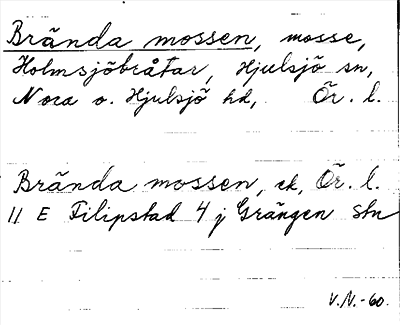 Brända mossen, mosse,
Holmsjöbråtar, Hjulsjö sn,
Nora o. Hjulsjö hd, Ör. l.
Brända mossen, ek, Ör. l.
11 E Filipstad 4 j Grängen stn
V.N.-60.